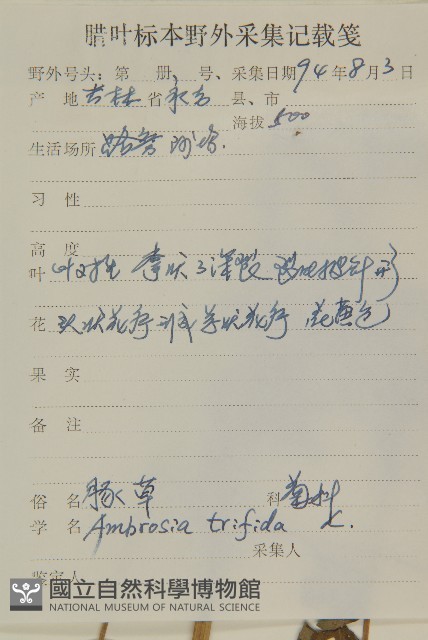 腊叶标本野外采集记载笺
野外号头：第 册 号、采集日期94年8月3日
产 地 吉林省永吉县、市
海拔 500
生活场所 路旁
习 性
高 度
叶 叶对生 掌状3深裂
花 头状花序 花黄色
果 实
备 注
俗 名 豚草 科 菊科
学 名 Ambrosia trifida L.
采集人
鉴定人
國立自然科學博物館
NATIONAL MUSEUM OF NATURAL SCIENCE